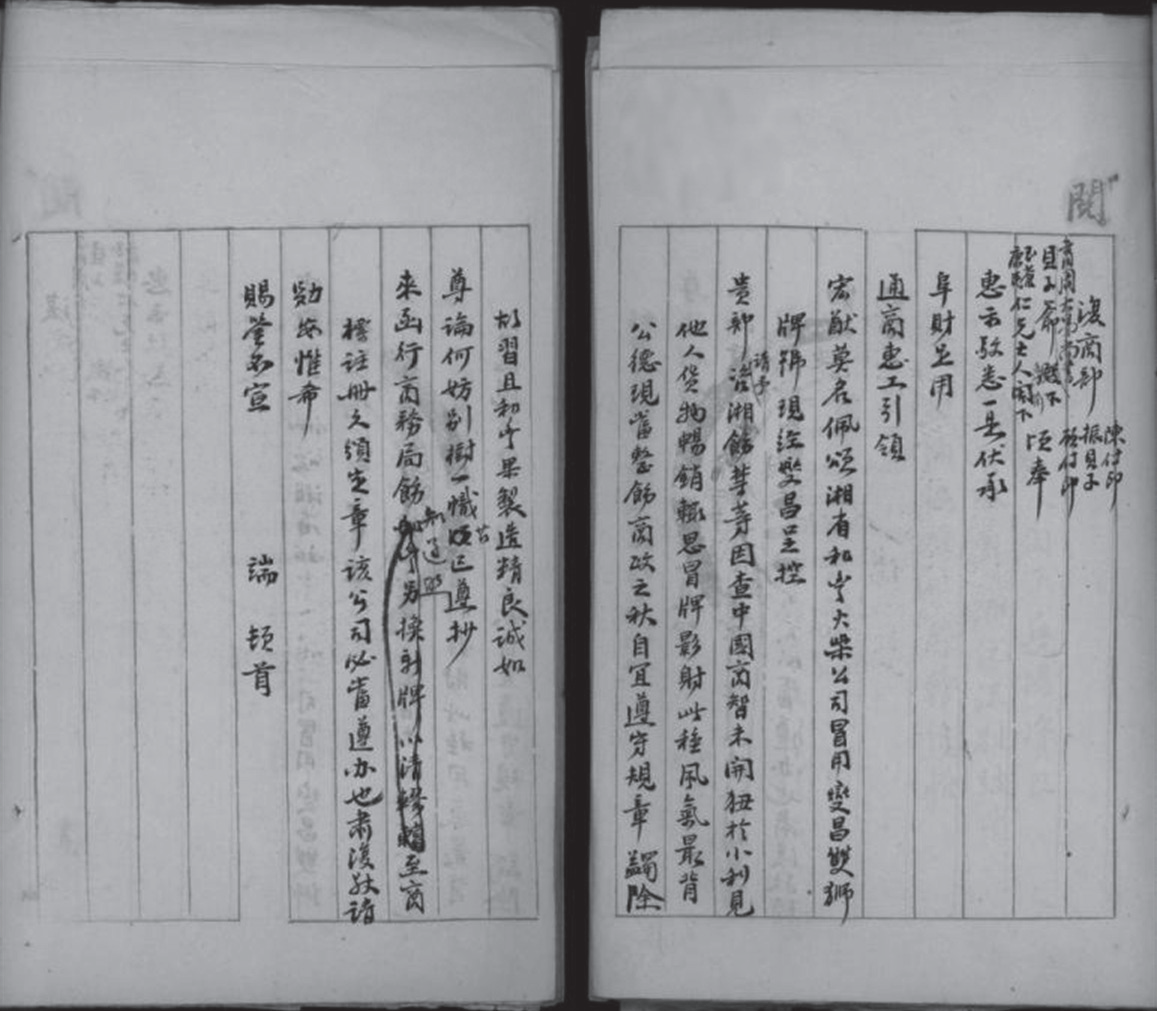 閱
復商部
陳侍郎
振貝子
顧侍郎
貝子爺 殿下
仁兄大人閣下 頃奉
惠示敬悉一是伏承
阜財足用
通商惠工引領
宏猷莫名佩頌湘省和豐火柴公司冒用燮昌雙獅
牌號現經燮昌呈控
貴部咨湘飭禁等因查中國商智未開狃於小利見
請予
他人貨物暢銷輒思冒牌影射此種風氣最背
公德現當整飭商政之秋自宜遵守規章蠲除
故習且和豐果製造精良誠如
尊論何妨別樹一幟 已遵抄
來函行商務局飭 另換新牌以清轇轕至商
知道照
標註冊久須定章該公司必當遵辦也肅復敬請
勛安惟希
賜鑒不宣
端 頓首